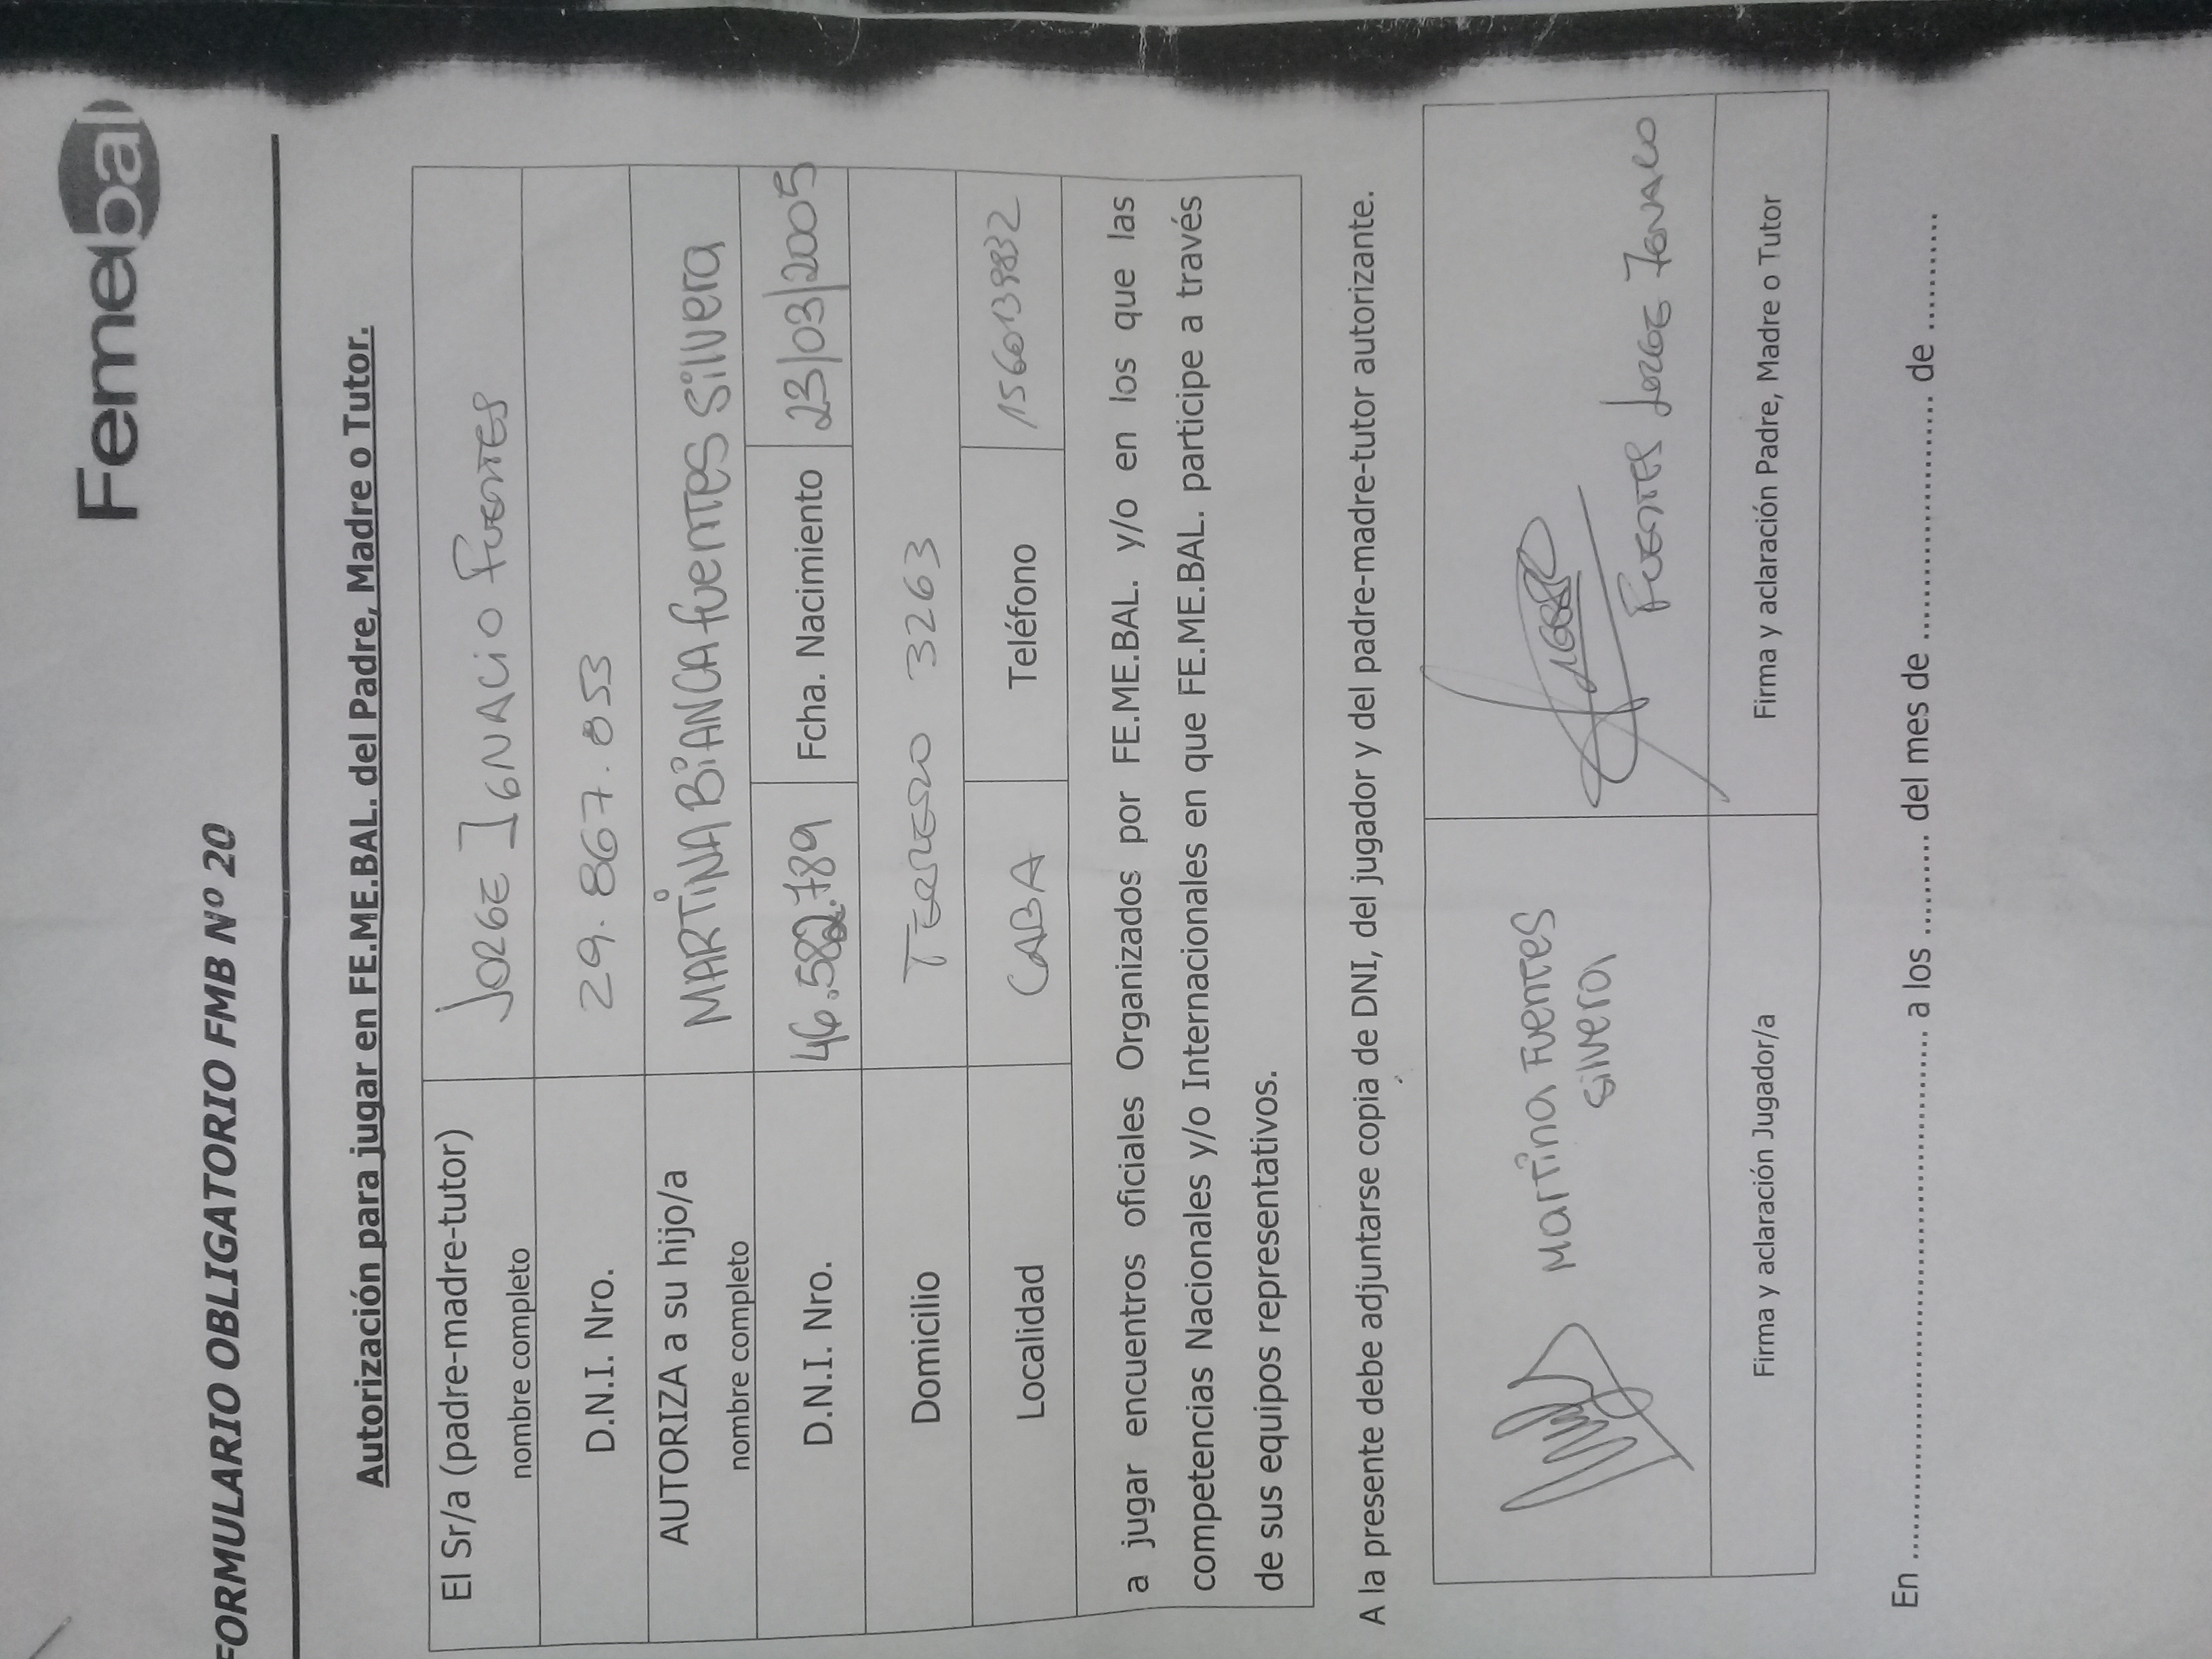 Femebal
FORMULARIO OBLIGATORIO FMB Nº 20
Autorización para jugar en FE.ME.BAL. del Padre, Madre o Tutor.
El Sr/a (padre-madre-tutor) JORGE IGNACIO FUENTES
nombre completo
D.N.I. Nro. 29.867.853
AUTORIZA a su hijo/a MARTINA BIANCA fuentes silvera
nombre completo
D.N.I. Nro. 46.582.789 Fcha. Nacimiento 23/03/2005
Domicilio 3263
Localidad CABA Teléfono 1560139832
a jugar encuentros oficiales Organizados por FE.ME.BAL. y/o en los que las
competencias Nacionales y/o Internacionales en que FE.ME.BAL. participe a través
de sus equipos representativos.
A la presente debe adjuntarse copia de DNI, del jugador y del padre-madre-tutor autorizante.
Martina Fuentes
Silvera
FUENTES JORGE IGNACIO
Firma y aclaración Jugador/a Firma y aclaración Padre, Madre o Tutor
En .......................................................... a los .......... del mes de .......................... de ..........